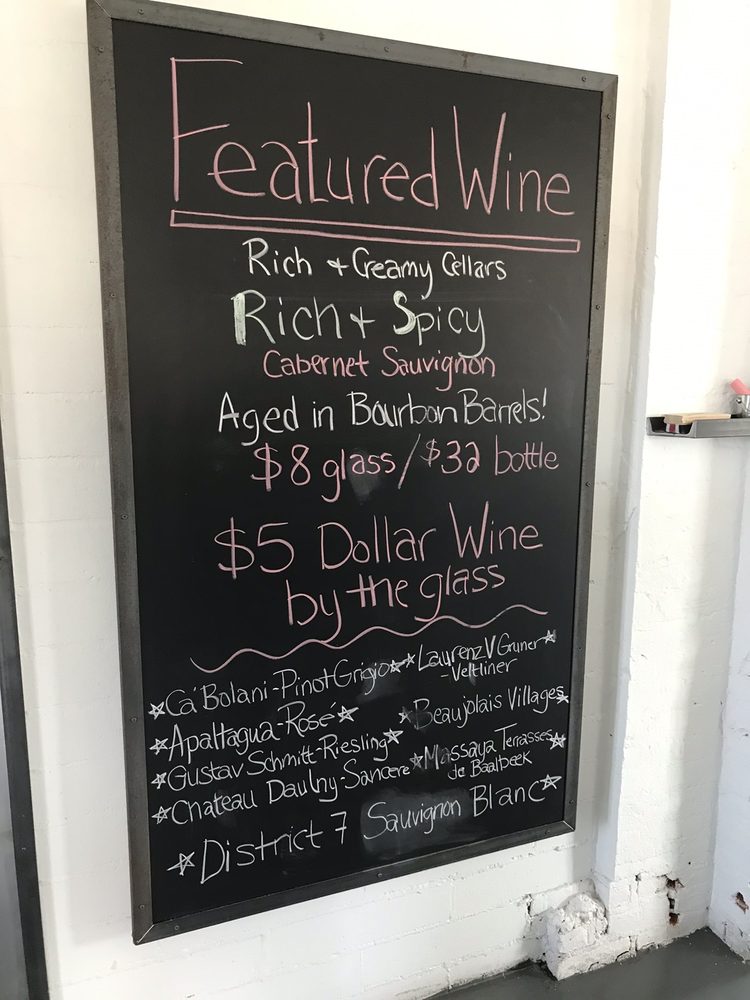 Featured Wine
Rich + Creamy Cellars
Rich + Spicy
Cabernet Sauvignon
Aged in Bourbon Barrels!
$8 glass / $32 bottle
$5 Dollar Wine
by the glass
Ca' Bolani - Pinot Grigio
Apaltagua - Rosé
Gustav Schmitt - Riesling
Chateau Daulny - Sancere
Laurenz V Gruner
- Veltliner
Beaujolais Villages
Massaya Terrasses
de Baalbeek
District 7 Sauvignon Blanc